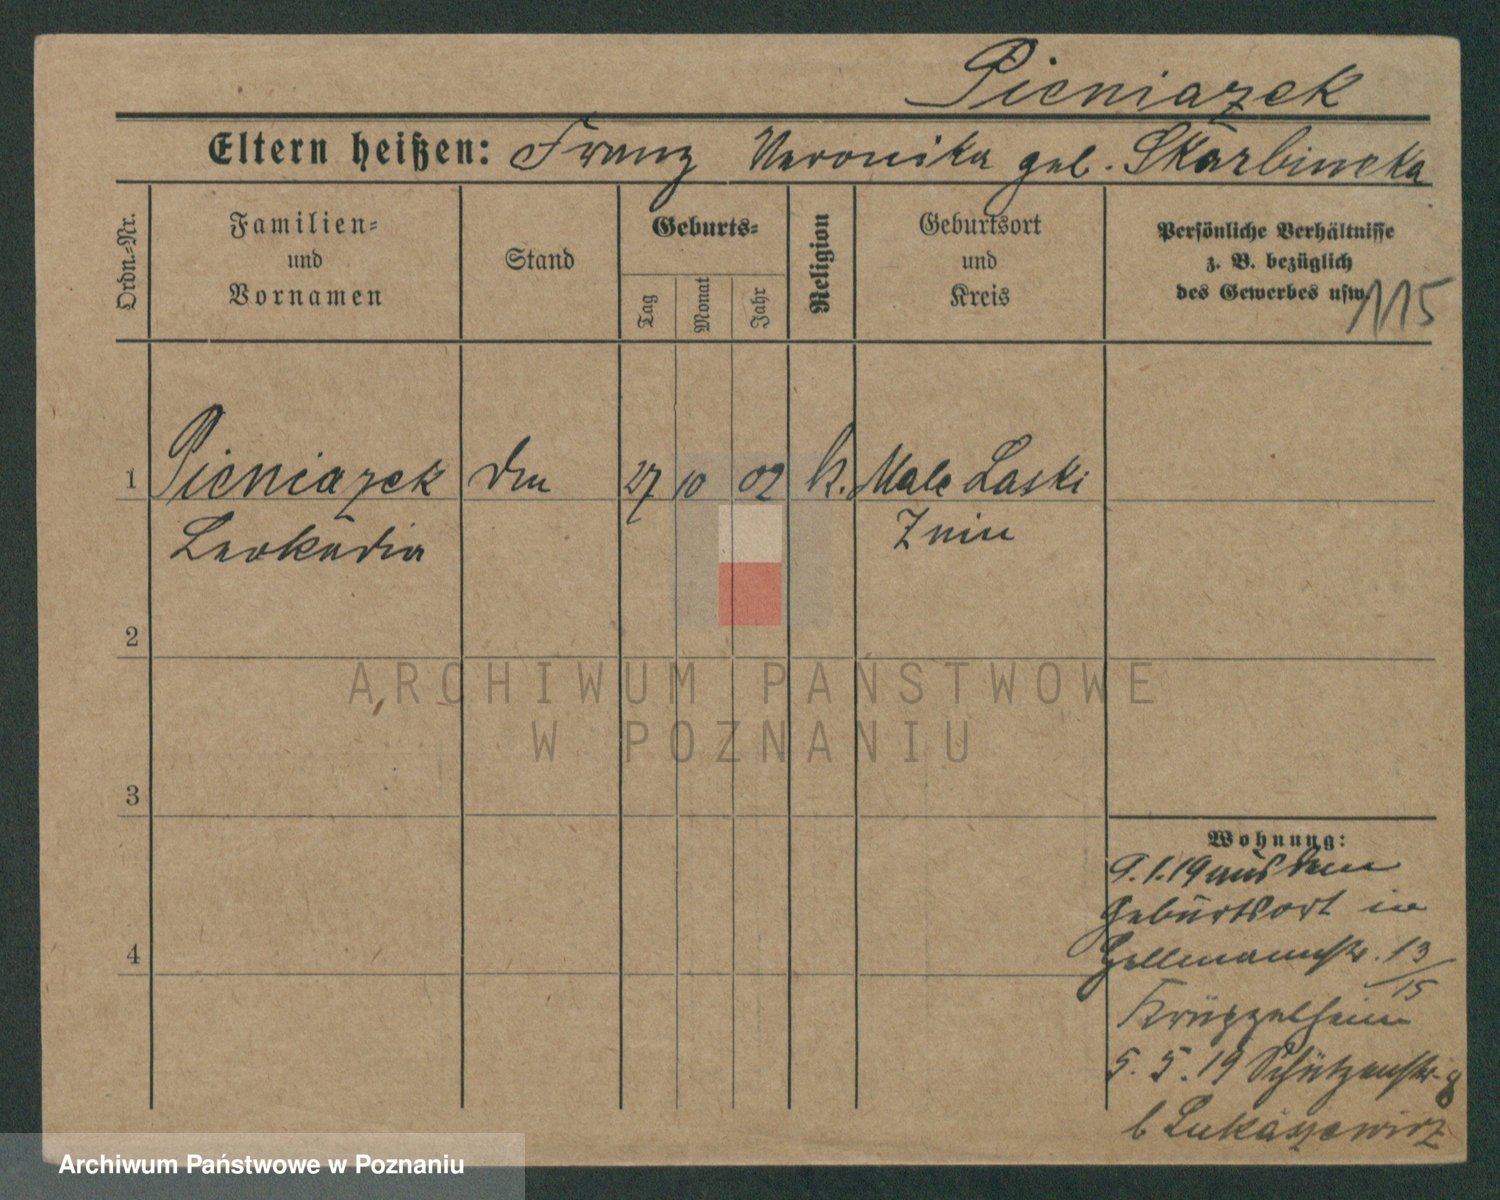 Pieniazek
Eltern heißen: Franz Veronika geb. Skarbinska
Ordn.=Nr.
Familien=
und
Vornamen
Stand
Geburts=
Tag
Monat
Jahr
Religion
Geburtsort
und
Kreis
Persönliche Verhältnisse
z. B. bezüglich
des Gewerbes usw.
115
1 Pieniazek 27 10 02 k. Male Laski
Leokadia Znin
2
ARCHIWUM PAŃSTWOWE
W POZNANIU
3
Wohnung:
9.1.19 aus dem
Geburtsort in
Gellmannstr. 13/15
4
Krüppelheim
5.5.19 Schützenstr. 8
b Lukaszewicz
Archiwum Państwowe w Poznaniu